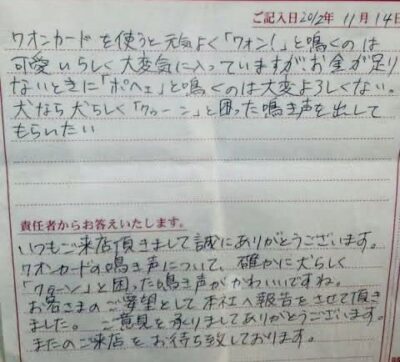 ご記入日2012年 11月 14日
ワオンカードを使うと元気よく「ワォン!」と鳴くのは
可愛いらしく大変気に入っていますが、お金が足り
ないときに「ポヘェ」と鳴くのは大変よろしくない。
犬なら犬らしく「クゥーン」と困った鳴き声を出して
もらいたい
責任者からお答えいたします。
いつもご来店頂きまして誠にありがとうございます。
ワオンカードの鳴き声について、確かに犬らしく
「クゥーン」と困った鳴き声がかわいいですね。
お客さまのご要望として本社へ報告をさせて頂き
ました。ご意見を承りましてありがとうございます。
またのご来店をお待ち致しております。